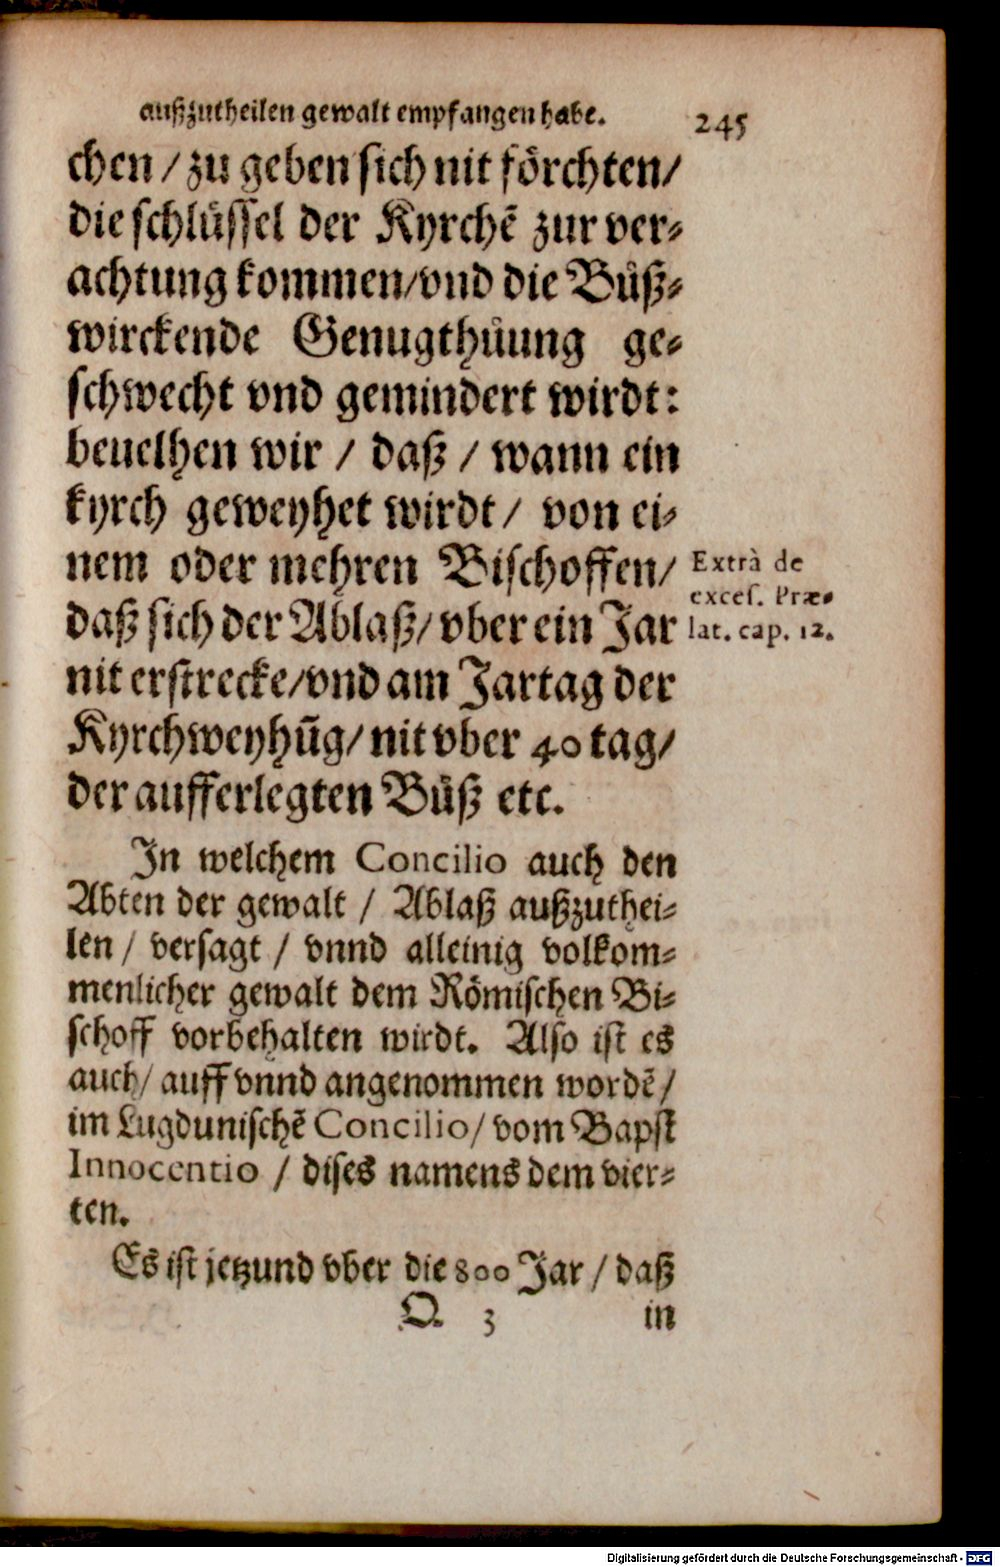 außzutheilen gewalt empfangen habe. 245
chen / zu geben sich nit förchten /
die schlüssel der Kyrchẽ zur ver⸗
achtung kommen / vnd die Bůß⸗
wirckende Genugthůung ge⸗
schwecht vnd gemindert wirdt:
beuelhen wir / daß / wann ein
kyrch geweyhet wirdt / von ei⸗
nem oder mehren Bischoffen /
daß sich der Ablaß / vber ein Jar
nit erstrecke / vnd am Jartag der
Kyrchweyhũg / nit vber 40 tag /
der aufferlegten Bůß etc.
Extrà de
exces. Præ⸗
lat. cap. 12.
In welchem Concilio auch den
Abten der gewalt / Ablaß außzuthei⸗
len / versagt / vnnd alleinig volkom⸗
menlicher gewalt dem Römischen Bi⸗
schoff vorbehalten wirdt. Also ist es
auch / auff vnnd angenommen wordẽ /
im Lugdunischẽ Concilio / vom Bapst
Innocentio / dises namens dem vier⸗
ten.
Es ist jetzund vber die 800 Jar / daß
Q 3 in
Digitalisierung gefördert durch die Deutsche Forschungsgemeinschaft - DFG